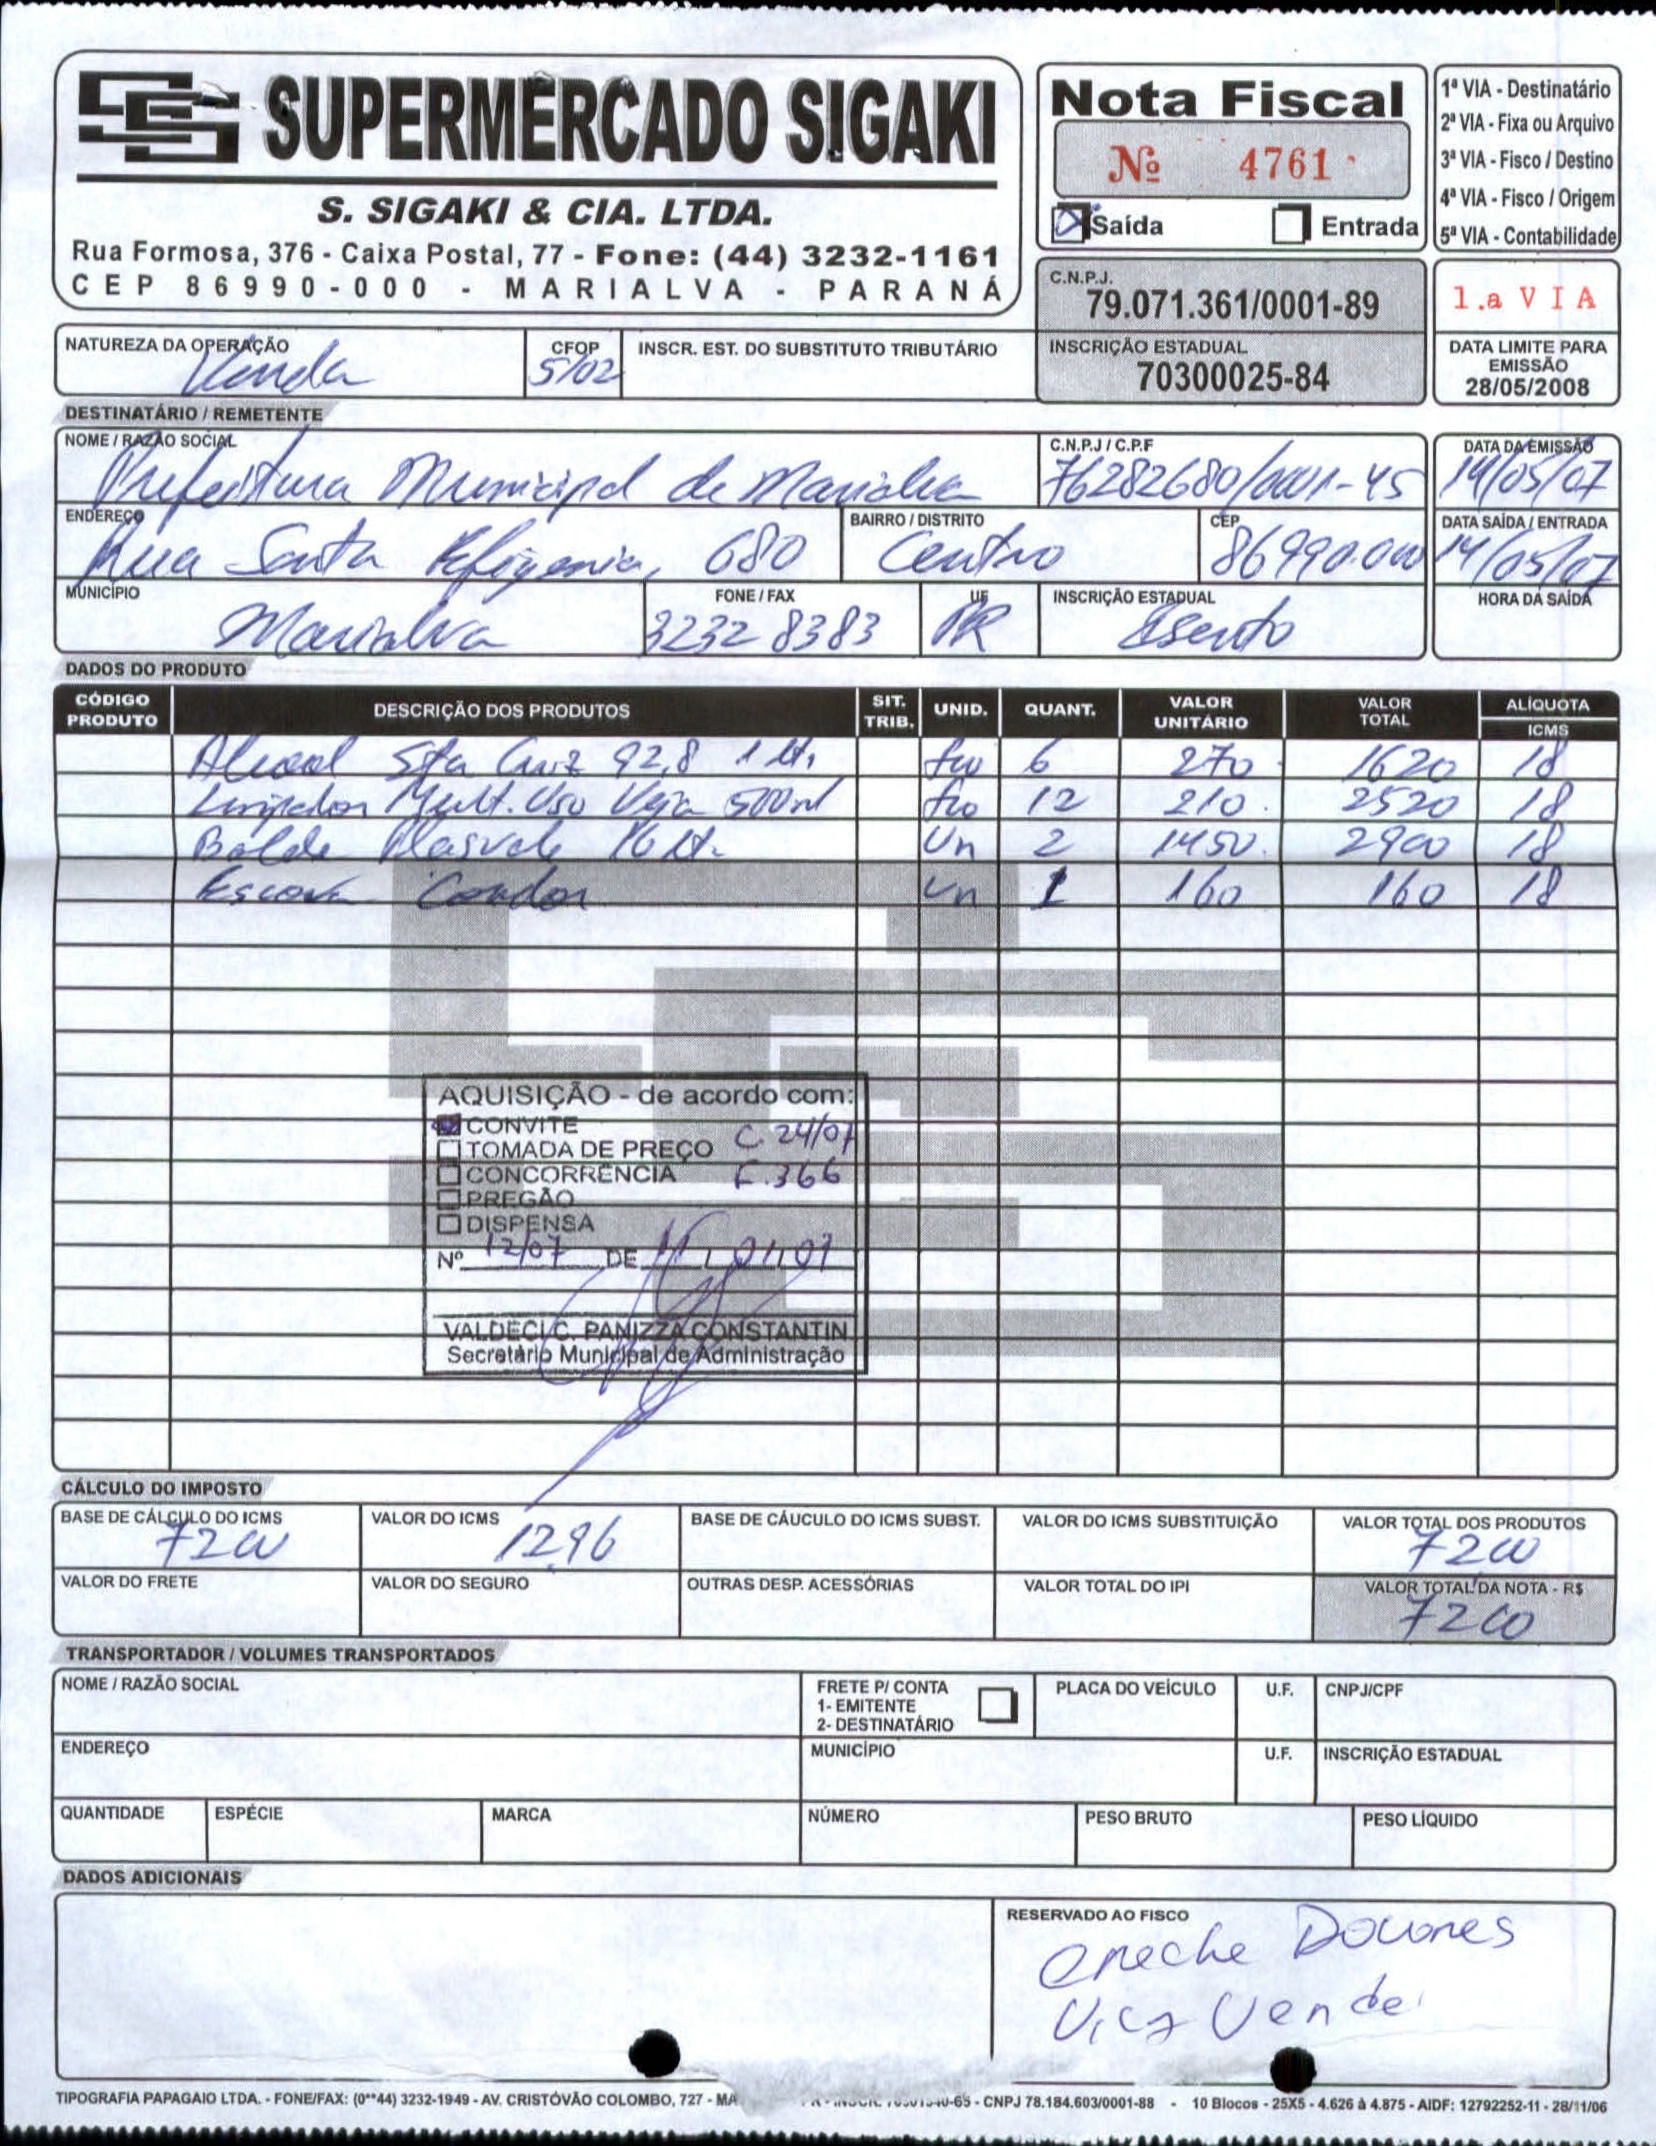 SUPERMERCADO SIGAKI
S. SIGAKI & CIA. LTDA.
Rua Formosa, 376 - Caixa Postal, 77 - Fone: (44) 3232-1161
CEP 86990-000 - MARIALVA - PARANÁ
Nota Fiscal
Nº 4761
Saída Entrada
1ª VIA - Destinatário
2ª VIA - Fixa ou Arquivo
3ª VIA - Fisco / Destino
4ª VIA - Fisco / Origem
5ª VIA - Contabilidade
C.N.P.J.
79.071.361/0001-89
1.a VIA
INSCRIÇÃO ESTADUAL
70300025-84
DATA LIMITE PARA
EMISSÃO
28/05/2008
NATUREZA DA OPERAÇÃO
Venda
CFOP
5102
INSCR. EST. DO SUBSTITUTO TRIBUTÁRIO
DESTINATÁRIO / REMETENTE
NOME / RAZÃO SOCIAL
Prefeitura Municipal de Marialva
C.N.P.J / C.P.F
76282680/0001-45
DATA DA EMISSÃO
14/05/07
ENDEREÇO
Rua Santa Efigenia, 680
BAIRRO / DISTRITO
Centro
CEP
86990.000
DATA SAÍDA / ENTRADA
14/05/07
MUNICÍPIO
Marialva
FONE / FAX
3232 8383
UF
PR
INSCRIÇÃO ESTADUAL
Isento
HORA DA SAÍDA
DADOS DO PRODUTO
CÓDIGO PRODUTO DESCRIÇÃO DOS PRODUTOS SIT. TRIB. UNID. QUANT. VALOR UNITÁRIO VALOR TOTAL ALÍQUOTA ICMS
Alcool Sta Cruz 92,8 1 Lt. 6 270 1620 18
Limpador Mult. Uso Veja 500ml 12 210 2520 18
Balde Plasvale 16 Lt. Un 2 1450 2900 18
Escova Condor Un 1 160 160 18
AQUISIÇÃO - de acordo com:
CONVITE
TOMADA DE PREÇO C. 24/07
CONCORRÊNCIA F. 366
PREGÃO
DISPENSA
Nº 12/07 DE 11/01/07
VALDECI C. PANIZZA CONSTANTIN
Secretário Municipal de Administração
CÁLCULO DO IMPOSTO
BASE DE CÁLCULO DO ICMS
7200
VALOR DO ICMS
1296
BASE DE CÁUCULO DO ICMS SUBST.
VALOR DO ICMS SUBSTITUIÇÃO
VALOR TOTAL DOS PRODUTOS
7200
VALOR DO FRETE
VALOR DO SEGURO
OUTRAS DESP. ACESSÓRIAS
VALOR TOTAL DO IPI
VALOR TOTAL DA NOTA - R$
7200
TRANSPORTADOR / VOLUMES TRANSPORTADOS
NOME / RAZÃO SOCIAL
FRETE P/ CONTA
1- EMITENTE
2- DESTINATÁRIO
PLACA DO VEÍCULO
U.F.
CNPJ/CPF
ENDEREÇO
MUNICÍPIO
U.F.
INSCRIÇÃO ESTADUAL
QUANTIDADE
ESPÉCIE
MARCA
NÚMERO
PESO BRUTO
PESO LÍQUIDO
DADOS ADICIONAIS
RESERVADO AO FISCO
creche
TIPOGRAFIA PAPAGAIO LTDA. - FONE/FAX: (0**44) 3232-1949 - AV. CRISTÓVÃO COLOMBO, 727 - CNPJ 78.184.603/0001-88 - 10 Blocos - 25X5 - 4.626 à 4.875 - AIDF: 12792252-11 - 28/11/06